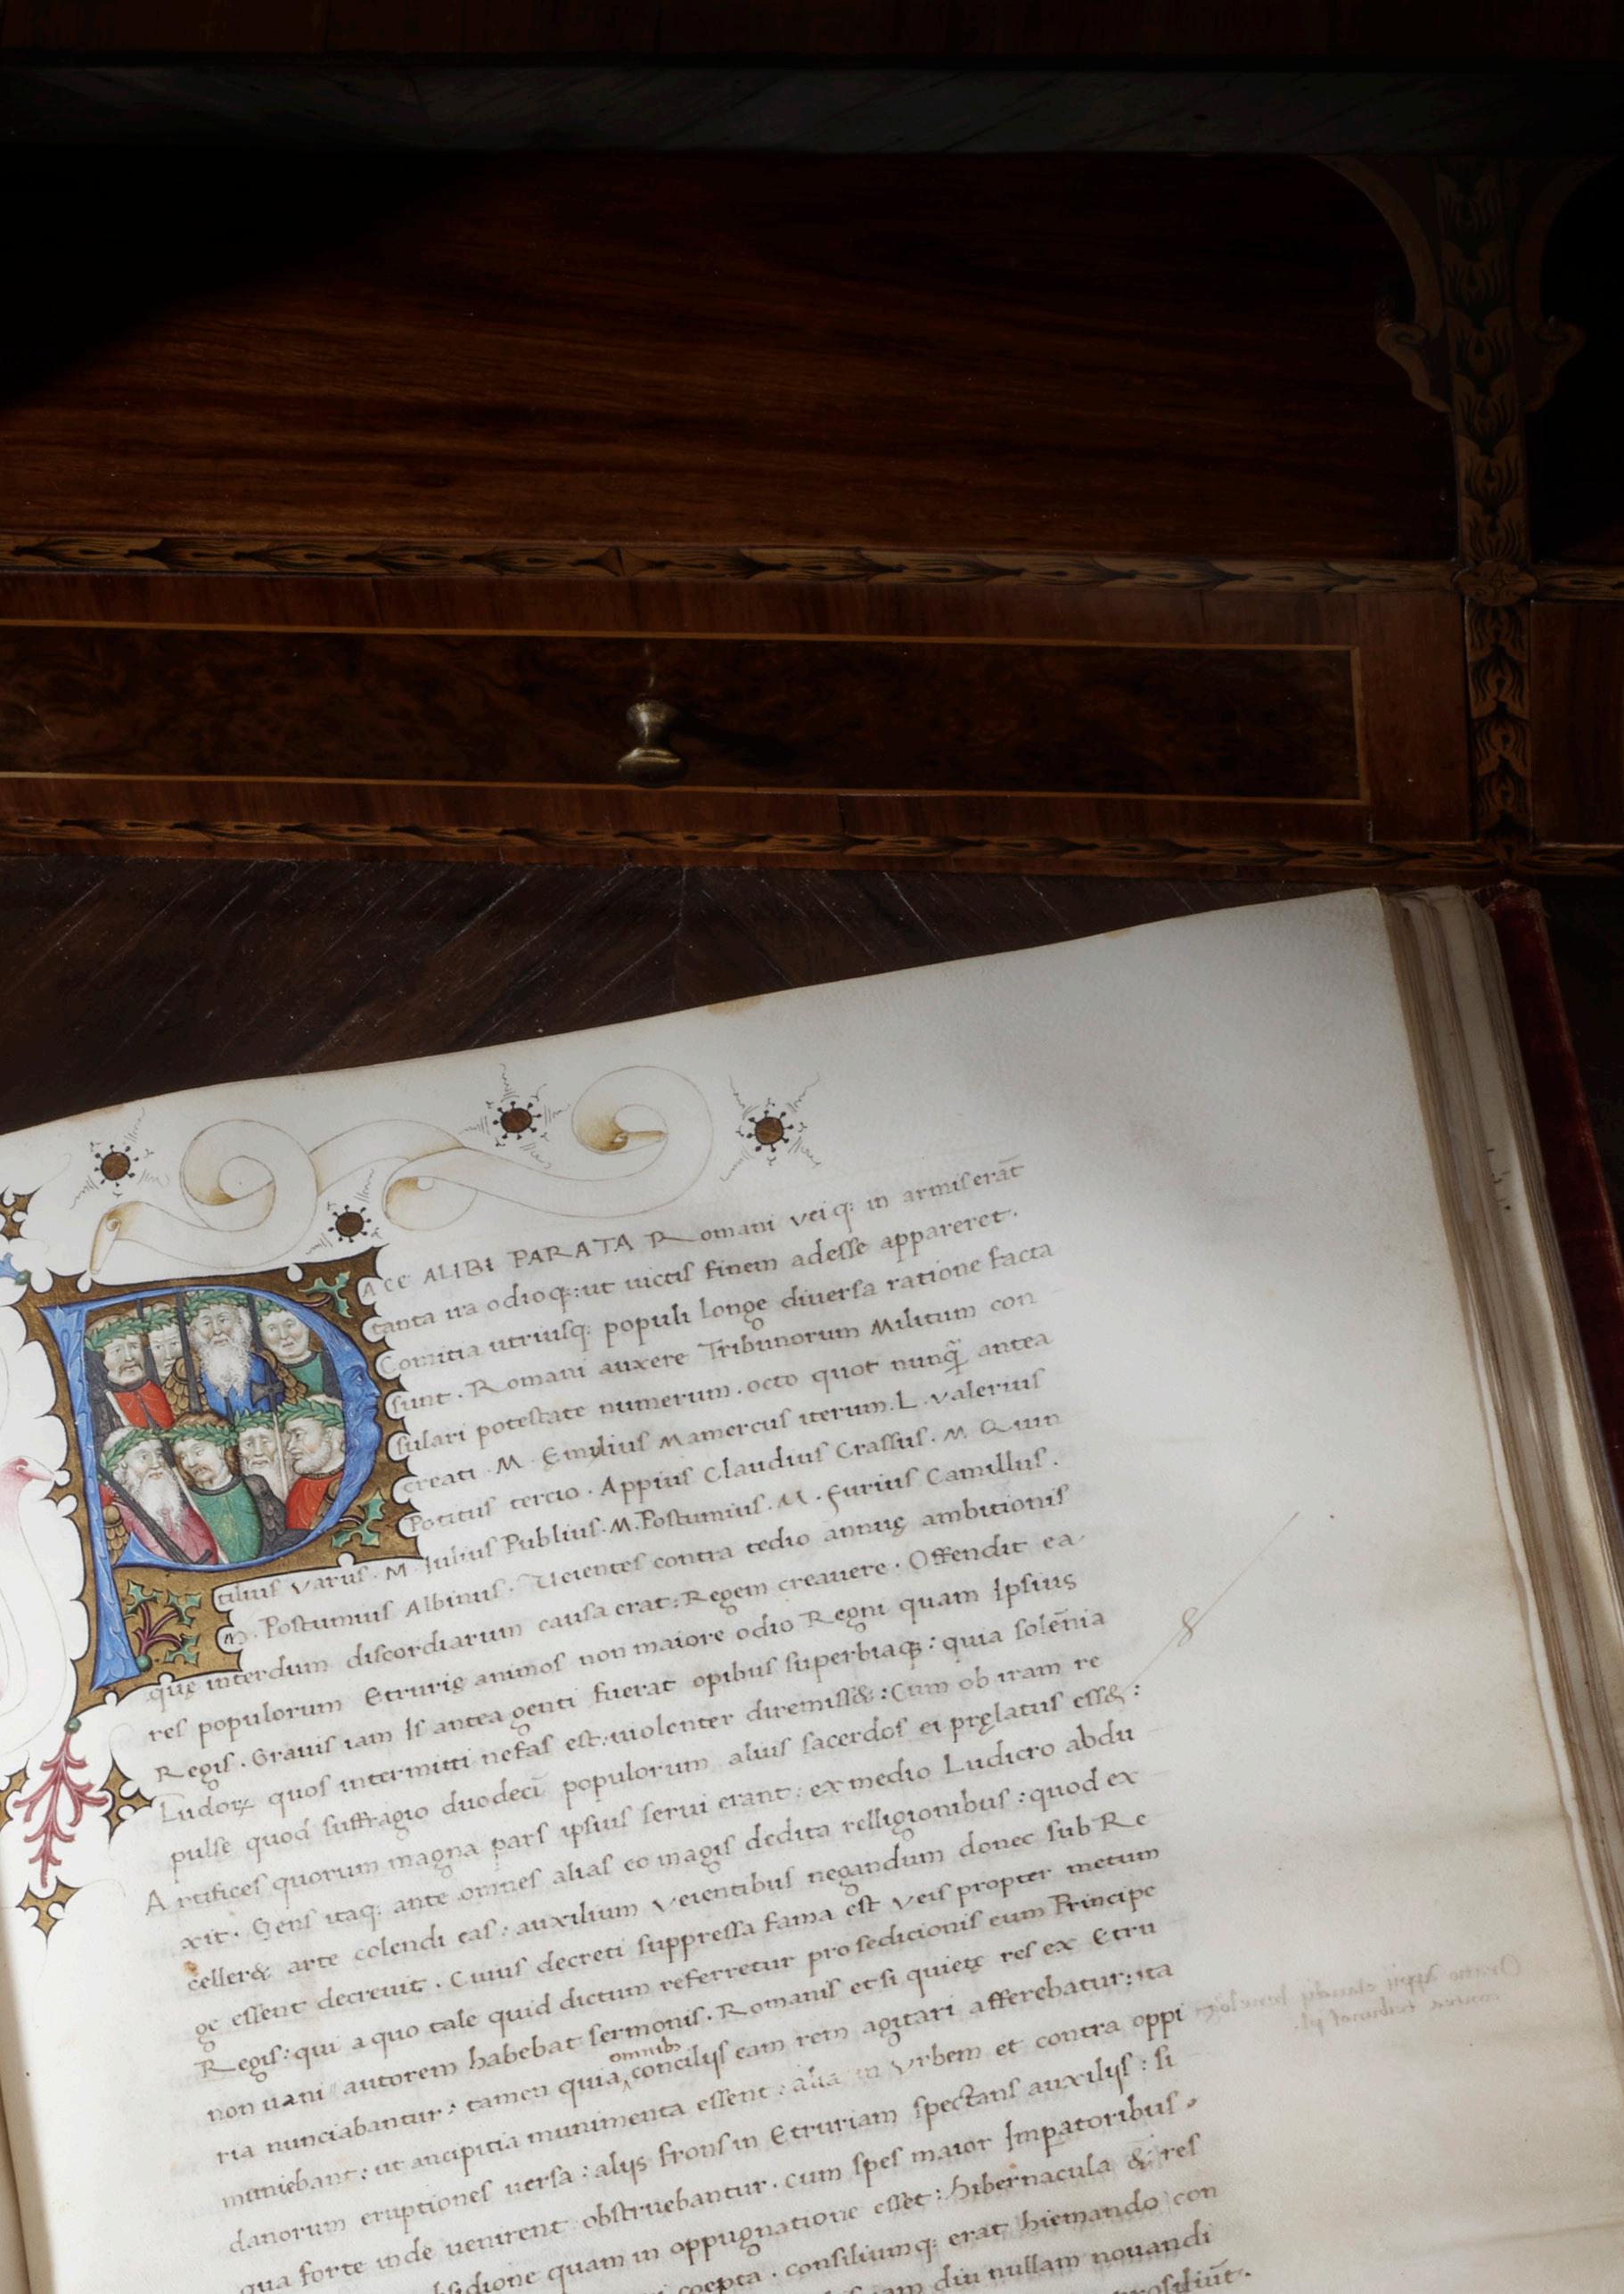 PACE ALIBI PARATA Romani veiq; in armis erāt
tanta ira odioq;: ut uictis finem adesse appareret.
Comitia utriusq; populi longe diuersa ratione facta
sunt. Romani auxere Tribunorum Militum con
sulari potestate numerum. octo quot nunq̃ antea
creati. M. Emylius Mamercus iterum. L. valerius
Potitus tercio. Appius Claudius Crassus. M. Quin
tilius varus. M. Iulius Publius. M. Postumius. M. furius Camillus.
M. Postumius Albinus. Ueientes contra tedio annuę ambitionis
quę interdum discordiarum causa erat: Regem creauere. Offendit ea
res populorum Etrurię animos non maiore odio Regni quam Ipsius
Regis. Grauis iam Is antea genti fuerat opibus superbiaq;: quia solēnia
Ludoꝝ quos intermitti nefas est: uiolenter diremiss&: Cum ob iram re
pulse quod suffragio duodecī populorum alius sacerdos ei pręlatus ess&:
Artifices quorum magna pars ipsius serui erant: ex medio Ludicro abdu
xit. Gens itaq; ante omnes alias eo magis dedita relligionibus: quod ex
celler& arte colendi eas: auxilium veientibus negandum donec sub Re
ge essent decreuit. Cuius decreti suppressa fama est veis propter metum
Regis: qui a quo tale quid dictum referretur pro sedicionis eum Principe
non uani autorem habebat sermonis. Romanis etsi quietę res ex Etru
omnibs
ria nunciabantur: tamen quia concilijs eam rem agitari afferebatur: ita
muniebant: ut ancipitia munimenta essent: alia in vrbem et contra oppi
danorum eruptiones uersa: alijs frons in Etruriam spectans auxilijs: si
qua forte inde uenirent obstruebantur. cum spes maior Impatoribus
obsidione quam in oppugnatione esset: hibernacula & res
coepta. consiliumq; erat hiemando con
diu nullam nouandi
8